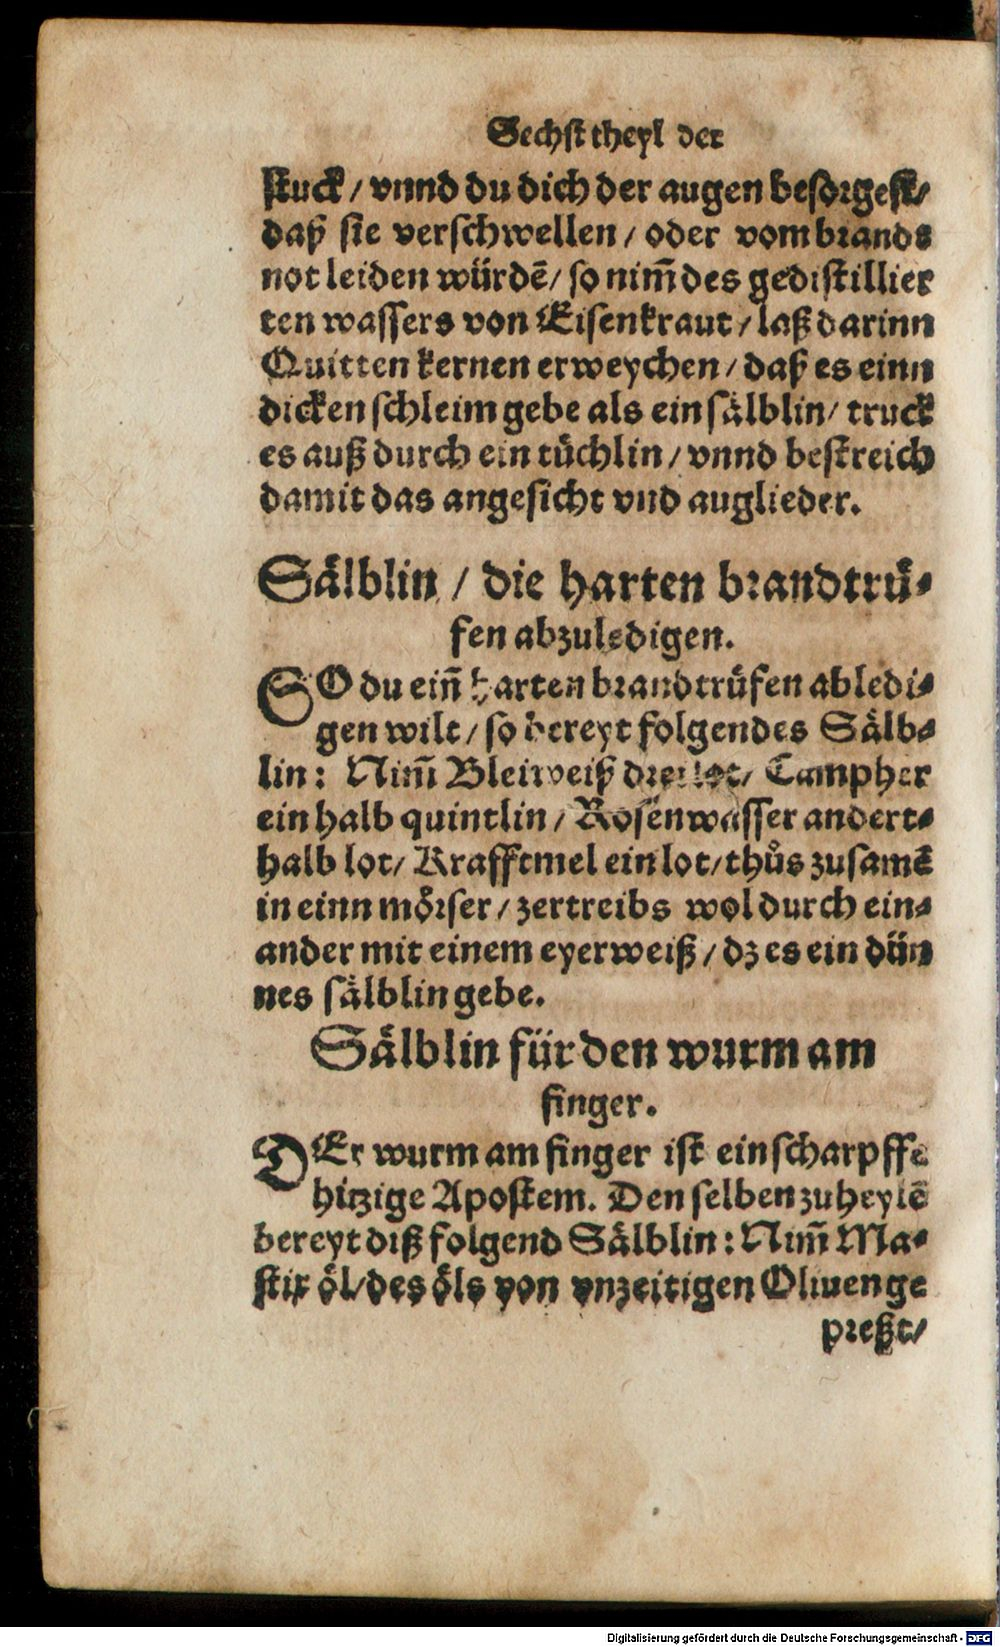 Sechst theyl der
stuck / vnnd du dich der augen besorgest/
daß sie verschwellen / oder vom brands
not leiden würdē / so nim̃ des gedistillier
ten wassers von Eisenkraut / laß darinn
Quitten kernen erweychen / daß es einn
dicken schleim gebe als ein sälblin / truck
es auß durch ein tüchlin / vnnd bestreich
damit das angesicht vnd auglieder.
Sälblin / die harten brandtrü⸗
fen abzuledigen.
SO du ein̄ harten brandtrüfen abledi⸗
gen wilt / so bereyt folgendes Sälb⸗
lin: Nim̃ Bleiweiß drei lot / Campher
ein halb quintlin / Rosenwasser andert⸗
halb lot / Krafftmel ein lot / thůs zusamē
in einn mörser / zertreibs wol durch ein⸗
ander mit einem eyerweiß / dz es ein dün
nes sälblin gebe.
Sälblin für den wurm am
finger.
DEr wurm am finger ist ein scharpffe
hitzige Apostem. Den selben zu heylē
bereyt diß folgend Sälblin: Nim̃ Ma⸗
stix öl / des öls von vnzeitigen Oliuen ge
preßt /
Digitalisierung gefördert durch die Deutsche Forschungsgemeinschaft - DFG